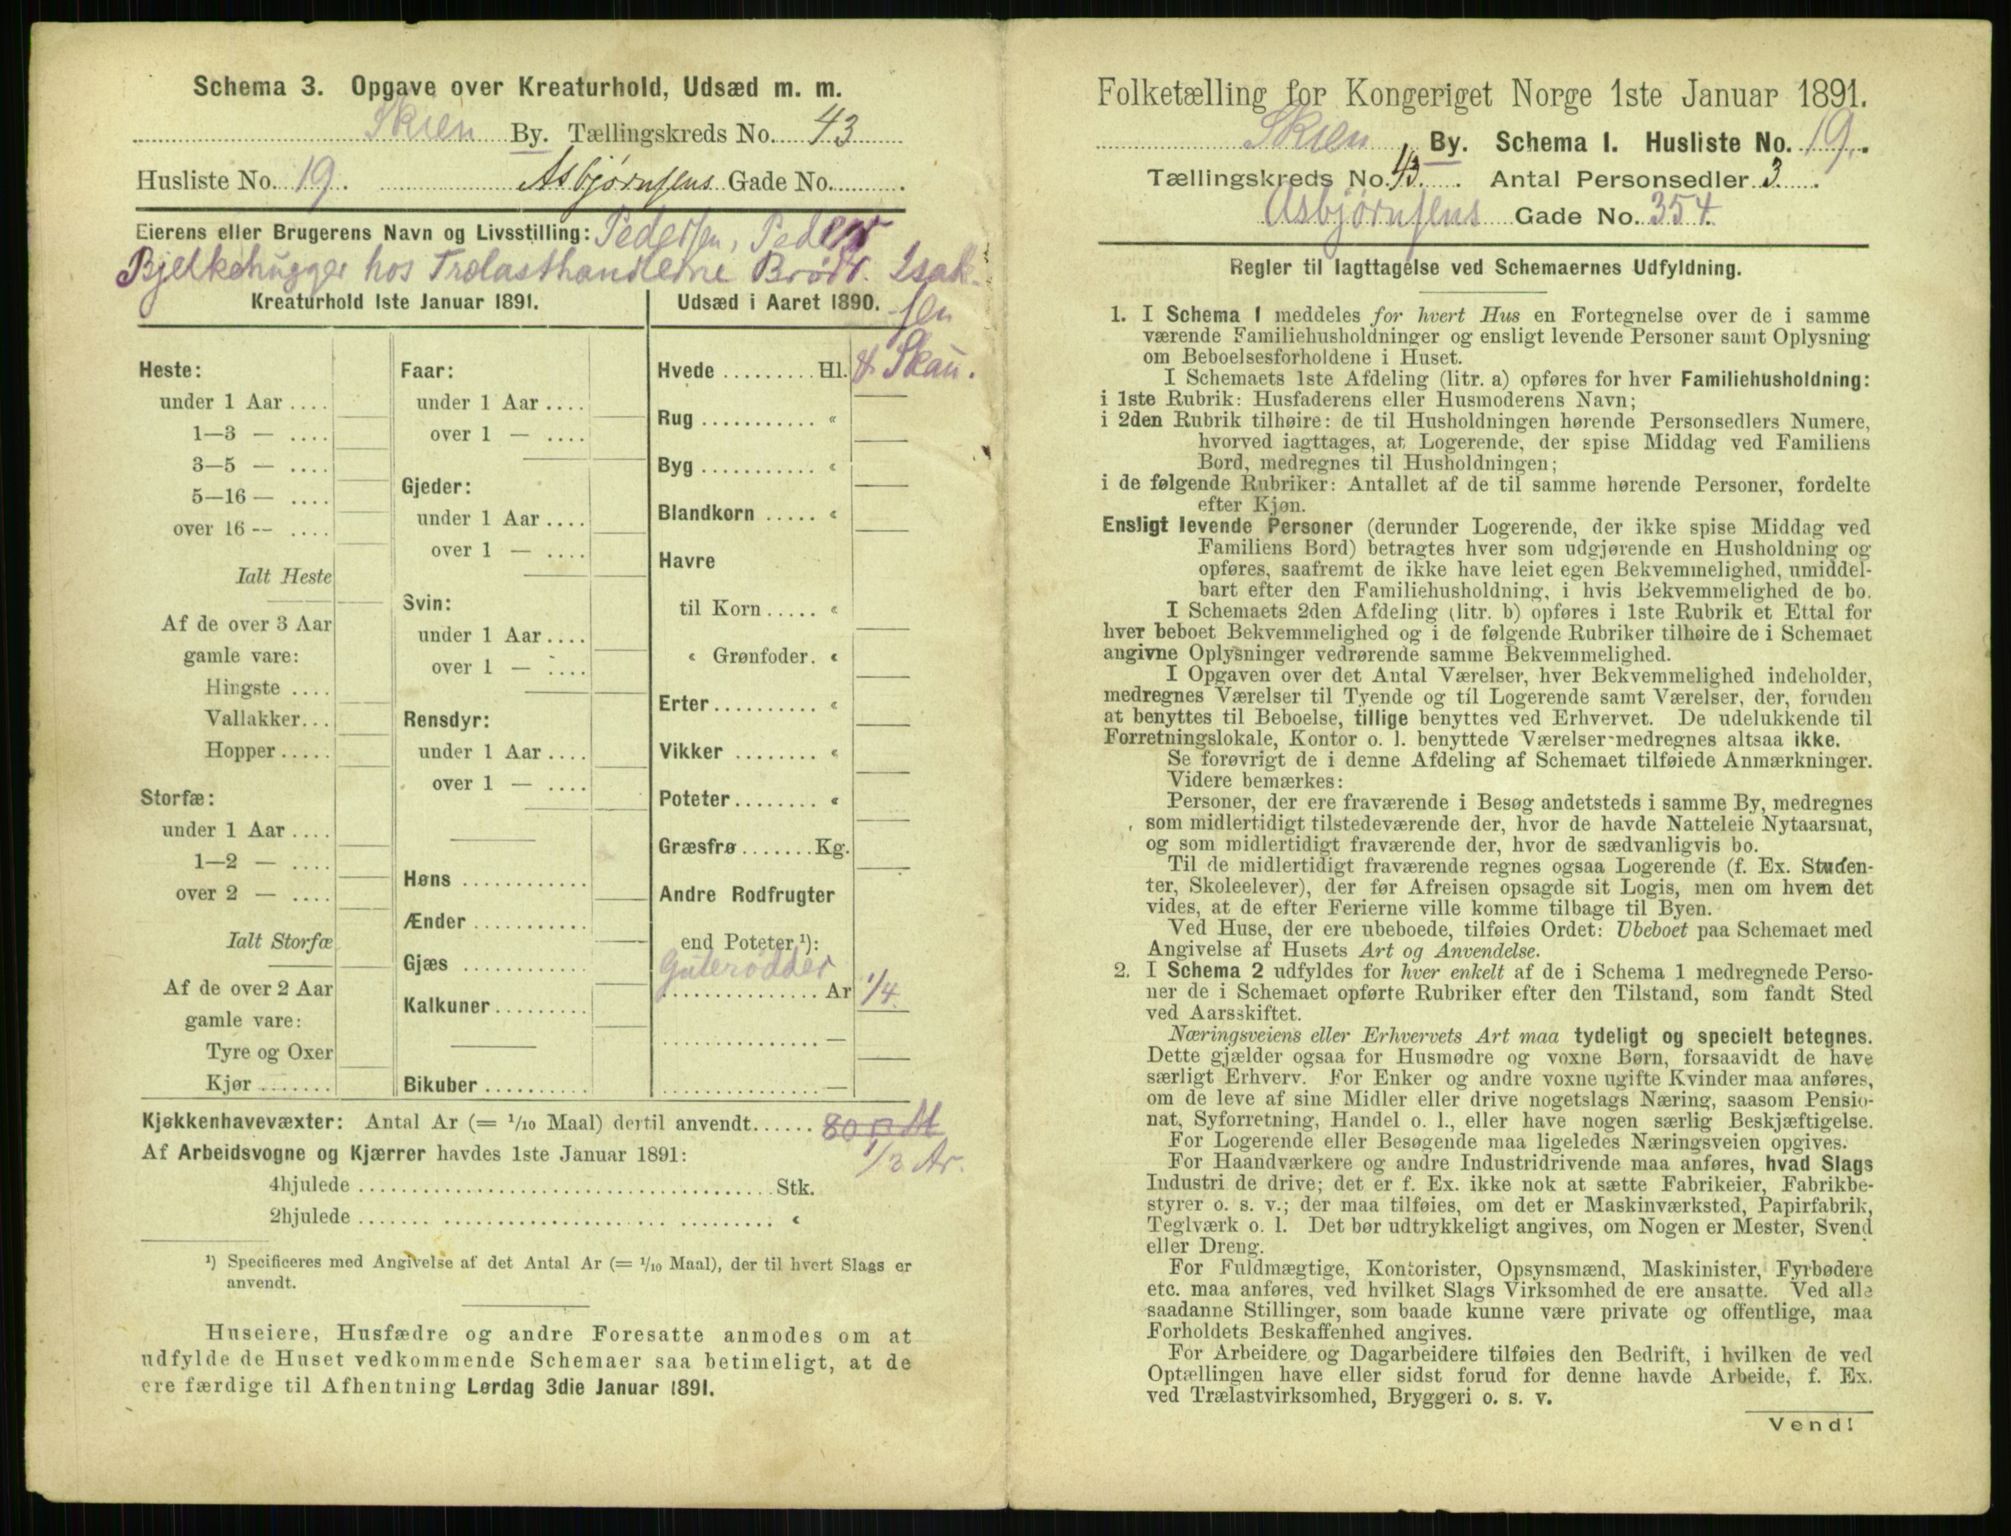 Schema 3. Opgave over Kreaturhold, Udsæd m. m.
Skien By. Tællingskreds No. 43
Husliste No. 19. Asbjørnsens Gade No.
Eierens eller Brugerens Navn og Livsstilling: Pedersen, Peder
Bjelkehugger hos Trælasthandlerne Brødr. Isak-
sen
& Skau.
Kreaturhold 1ste Januar 1891.
Heste:
under 1 Aar ....
1—3 — ....
3—5 — ....
5—16 — ....
over 16 -- ....
Ialt Heste
Af de over 3 Aar
gamle vare:
Hingste ....
Vallakker...
Hopper.....
Storfæ:
under 1 Aar ....
1—2 — ....
over 2 — ....
Ialt Storfæ
Af de over 2 Aar
gamle vare:
Tyre og Oxer
Kjør .......
Faar:
under 1 Aar ....
over 1 — ....
Gjeder:
under 1 Aar ....
over 1 — ....
Svin:
under 1 Aar ....
over 1 — ....
Rensdyr:
under 1 Aar ....
over 1 — ....
Høns ............
Ænder ...........
Gjæs ............
Kalkuner.........
Bikuber ..........
Udsæd i Aaret 1890.
Hvede ......... Hl.
Rug ........... «
Byg ........... «
Blandkorn ..... «
Havre
til Korn ..... «
« Grønfoder. «
Erter .......... «
Vikker ........ «
Poteter........ «
Græsfrø ....... Kg.
Andre Rodfrugter
end Poteter ¹):
Gulerødder
............... Ar 1/4.
............... —
............... —
Kjøkkenhavevæxter: Antal Ar (= 1/10 Maal) dertil anvendt...... 80 □ M
1/2 Ar.
Af Arbeidsvogne og Kjærrer havdes 1ste Januar 1891:
4hjulede ........................................ Stk.
2hjulede ........................................ «
¹) Specificeres med Angivelse af det Antal Ar (= 1/10 Maal), der til hvert Slags er
anvendt.
Huseiere, Husfædre og andre Foresatte anmodes om at
udfylde de Huset vedkommende Schemaer saa betimeligt, at de
ere færdige til Afhentning Lørdag 3die Januar 1891.
Folketælling for Kongeriget Norge 1ste Januar 1891.
Skien By. Schema 1. Husliste No. 19.
Tællingskreds No. 43. Antal Personsedler 3
Asbjørnsens Gade No. 354.
Regler til Iagttagelse ved Schemaernes Udfyldning.
1. I Schema 1 meddeles for hvert Hus en Fortegnelse over de i samme
værende Familiehusholdninger og ensligt levende Personer samt Oplysning
om Beboelsesforholdene i Huset.
I Schemaets 1ste Afdeling (litr. a) opføres for hver Familiehusholdning:
i 1ste Rubrik: Husfaderens eller Husmoderens Navn;
i 2den Rubrik tilhøire: de til Husholdningen hørende Personsedlers Numere,
hvorved iagttages, at Logerende, der spise Middag ved Familiens
Bord, medregnes til Husholdningen;
i de følgende Rubriker: Antallet af de til samme hørende Personer, fordelte
efter Kjøn.
Ensligt levende Personer (derunder Logerende, der ikke spise Middag ved
Familiens Bord) betragtes hver som udgjørende en Husholdning og
opføres, saafremt de ikke have leiet egen Bekvemmelighed, umiddel-
bart efter den Familiehusholdning, i hvis Bekvemmelighed de bo.
I Schemaets 2den Afdeling (litr. b) opføres i 1ste Rubrik et Ettal for
hver beboet Bekvemmelighed og i de følgende Rubriker tilhøire de i Schemaet
angivne Oplysninger vedrørende samme Bekvemmelighed.
I Opgaven over det Antal Værelser, hver Bekvemmelighed indeholder,
medregnes Værelser til Tyende og til Logerende samt Værelser, der, foruden
at benyttes til Beboelse, tillige benyttes ved Erhvervet. De udelukkende til
Forretningslokale, Kontor o. l. benyttede Værelser medregnes altsaa ikke.
Se forøvrigt de i denne Afdeling af Schemaet tilføiede Anmærkninger.
Videre bemærkes:
Personer, der ere fraværende i Besøg andetsteds i samme By, medregnes
som midlertidigt tilstedeværende der, hvor de havde Natteleie Nytaarsnat,
og som midlertidigt fraværende der, hvor de sædvanligvis bo.
Til de midlertidigt fraværende regnes ogsaa Logerende (f. Ex. Studen-
ter, Skoleelever), der før Afreisen opsagde sit Logis, men om hvem det
vides, at de efter Ferierne ville komme tilbage til Byen.
Ved Huse, der ere ubeboede, tilføies Ordet: Ubeboet paa Schemaet med
Angivelse af Husets Art og Anvendelse.
2. I Schema 2 udfyldes for hver enkelt af de i Schema 1 medregnede Perso-
ner de i Schemaet opførte Rubriker efter den Tilstand, som fandt Sted
ved Aarsskiftet.
Næringsveiens eller Erhvervets Art maa tydeligt og specielt betegnes.
Dette gjælder ogsaa for Husmødre og voxne Børn, forsaavidt de have
særligt Erhverv. For Enker og andre voxne ugifte Kvinder maa anføres,
om de leve af sine Midler eller drive nogetslags Næring, saasom Pensio-
nat, Syforretning, Handel o. l., eller have nogen særlig Beskjæftigelse.
For Logerende eller Besøgende maa ligeledes Næringsveien opgives.
For Haandværkere og andre Industridrivende maa anføres, hvad Slags
Industri de drive; det er f. Ex. ikke nok at sætte Fabrikeier, Fabrikbe-
styrer o. s. v.; der maa tilføies, om det er Maskinværksted, Papirfabrik,
Teglværk o. l. Det bør udtrykkeligt angives, om Nogen er Mester, Svend
eller Dreng.
For Fuldmægtige, Kontorister, Opsynsmænd, Maskinister, Fyrbødere
etc. maa anføres, ved hvilket Slags Virksomhed de ere ansatte. Ved alle
saadanne Stillinger, som baade kunne være private og offentlige, maa
Forholdets Beskaffenhed angives.
For Arbeidere og Dagarbeidere tilføies den Bedrift, i hvilken de ved
Optællingen have eller sidst forud for denne havde Arbeide, f. Ex.
ved Trælastvirksomhed, Bryggeri o. s. v.
Vend!